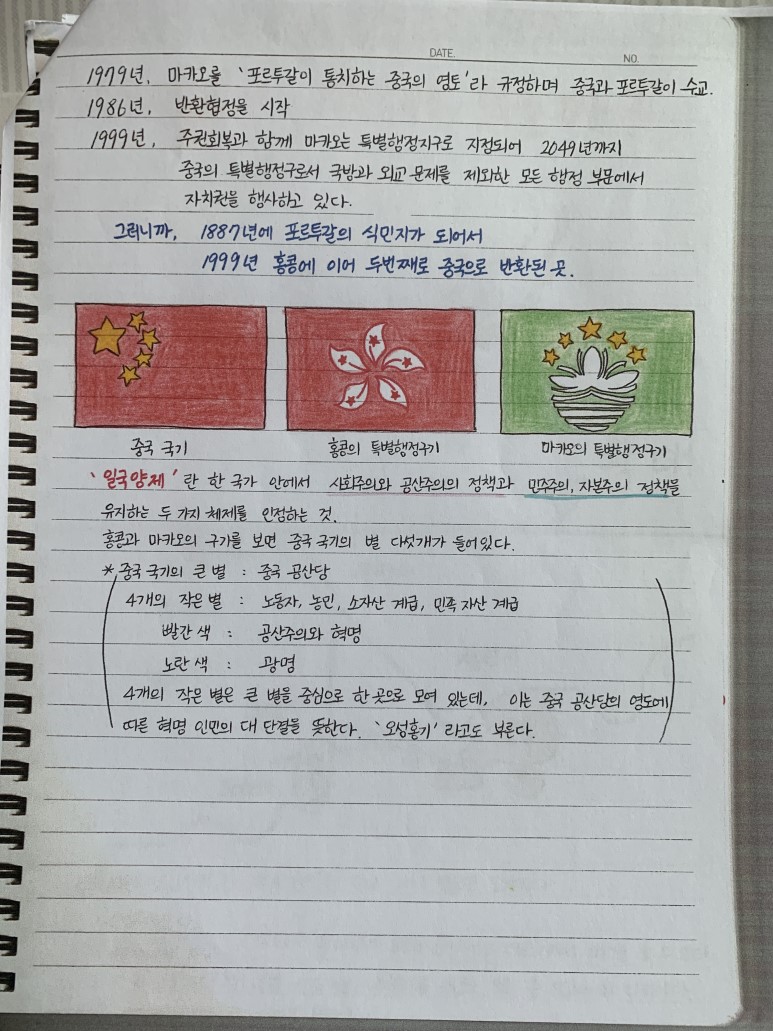 DATE.
NO.
1979년, 마카오를 '포르투갈이 통치하는 중국의 영토'라 규정하며 중국과 포르투갈이 수교.
1986년, 반환협정을 시작
1999년, 주권회복과 함께 마카오는 특별행정지구로 지정되어 2049년까지
중국의 특별행정구로서 국방과 외교 문제를 제외한 모든 행정 부문에서
자치권을 행사하고 있다.
그러니까, 1887년에 포르투갈의 식민지가 되어서
1999년 홍콩에 이어 두번째로 중국으로 반환된 곳.
중국 국기
홍콩의 특별행정구기
마카오의 특별행정구기
'일국양제'란 한 국가 안에서 사회주의와 공산주의의 정책과 민주주의, 자본주의 정책을
유지하는 두 가지 체제를 인정하는 것.
홍콩과 마카오의 구기를 보면 중국 국기의 별 다섯개가 들어있다.
* 중국 국기의 큰 별 : 중국 공산당
4개의 작은 별 : 노동자, 농민, 소자산 계급, 민족 자산 계급
빨간 색 : 공산주의와 혁명
노란 색 : 광명
4개의 작은 별은 큰 별을 중심으로 한 곳으로 모여 있는데, 이는 중국 공산당의 영도에
따른 혁명 인민의 대 단결을 뜻한다. '오성홍기'라고도 부른다.